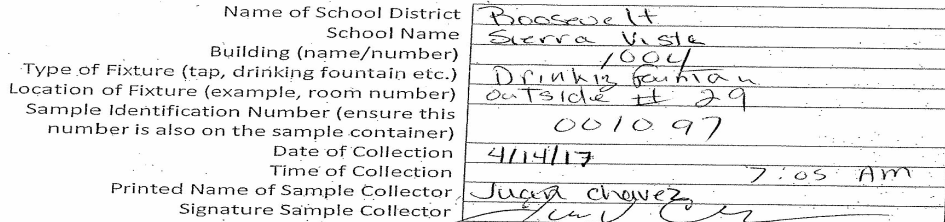 Name of School District Roosevelt
School Name Sierra Vista
Building (name/number) 1004
Type of Fixture (tap, drinking fountain etc.) Drinkig fountan
Location of Fixture (example, room number) outside # 29
Sample Identification Number (ensure this
number is also on the sample container) 001097
Date of Collection 4/14/17
Time of Collection 7:05 AM
Printed Name of Sample Collector Juan Chavez
Signature Sample Collector